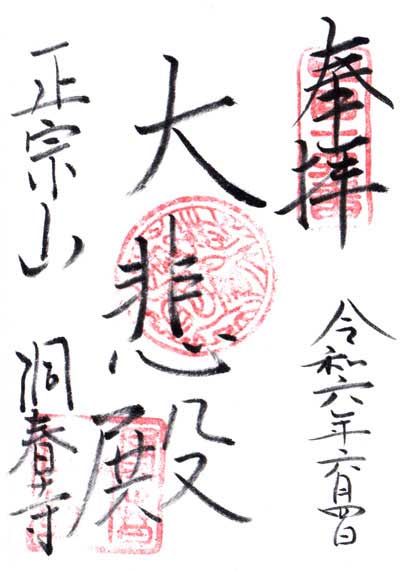 奉拝
令和六年六月四日
大悲殿
正宗山
洞春寺